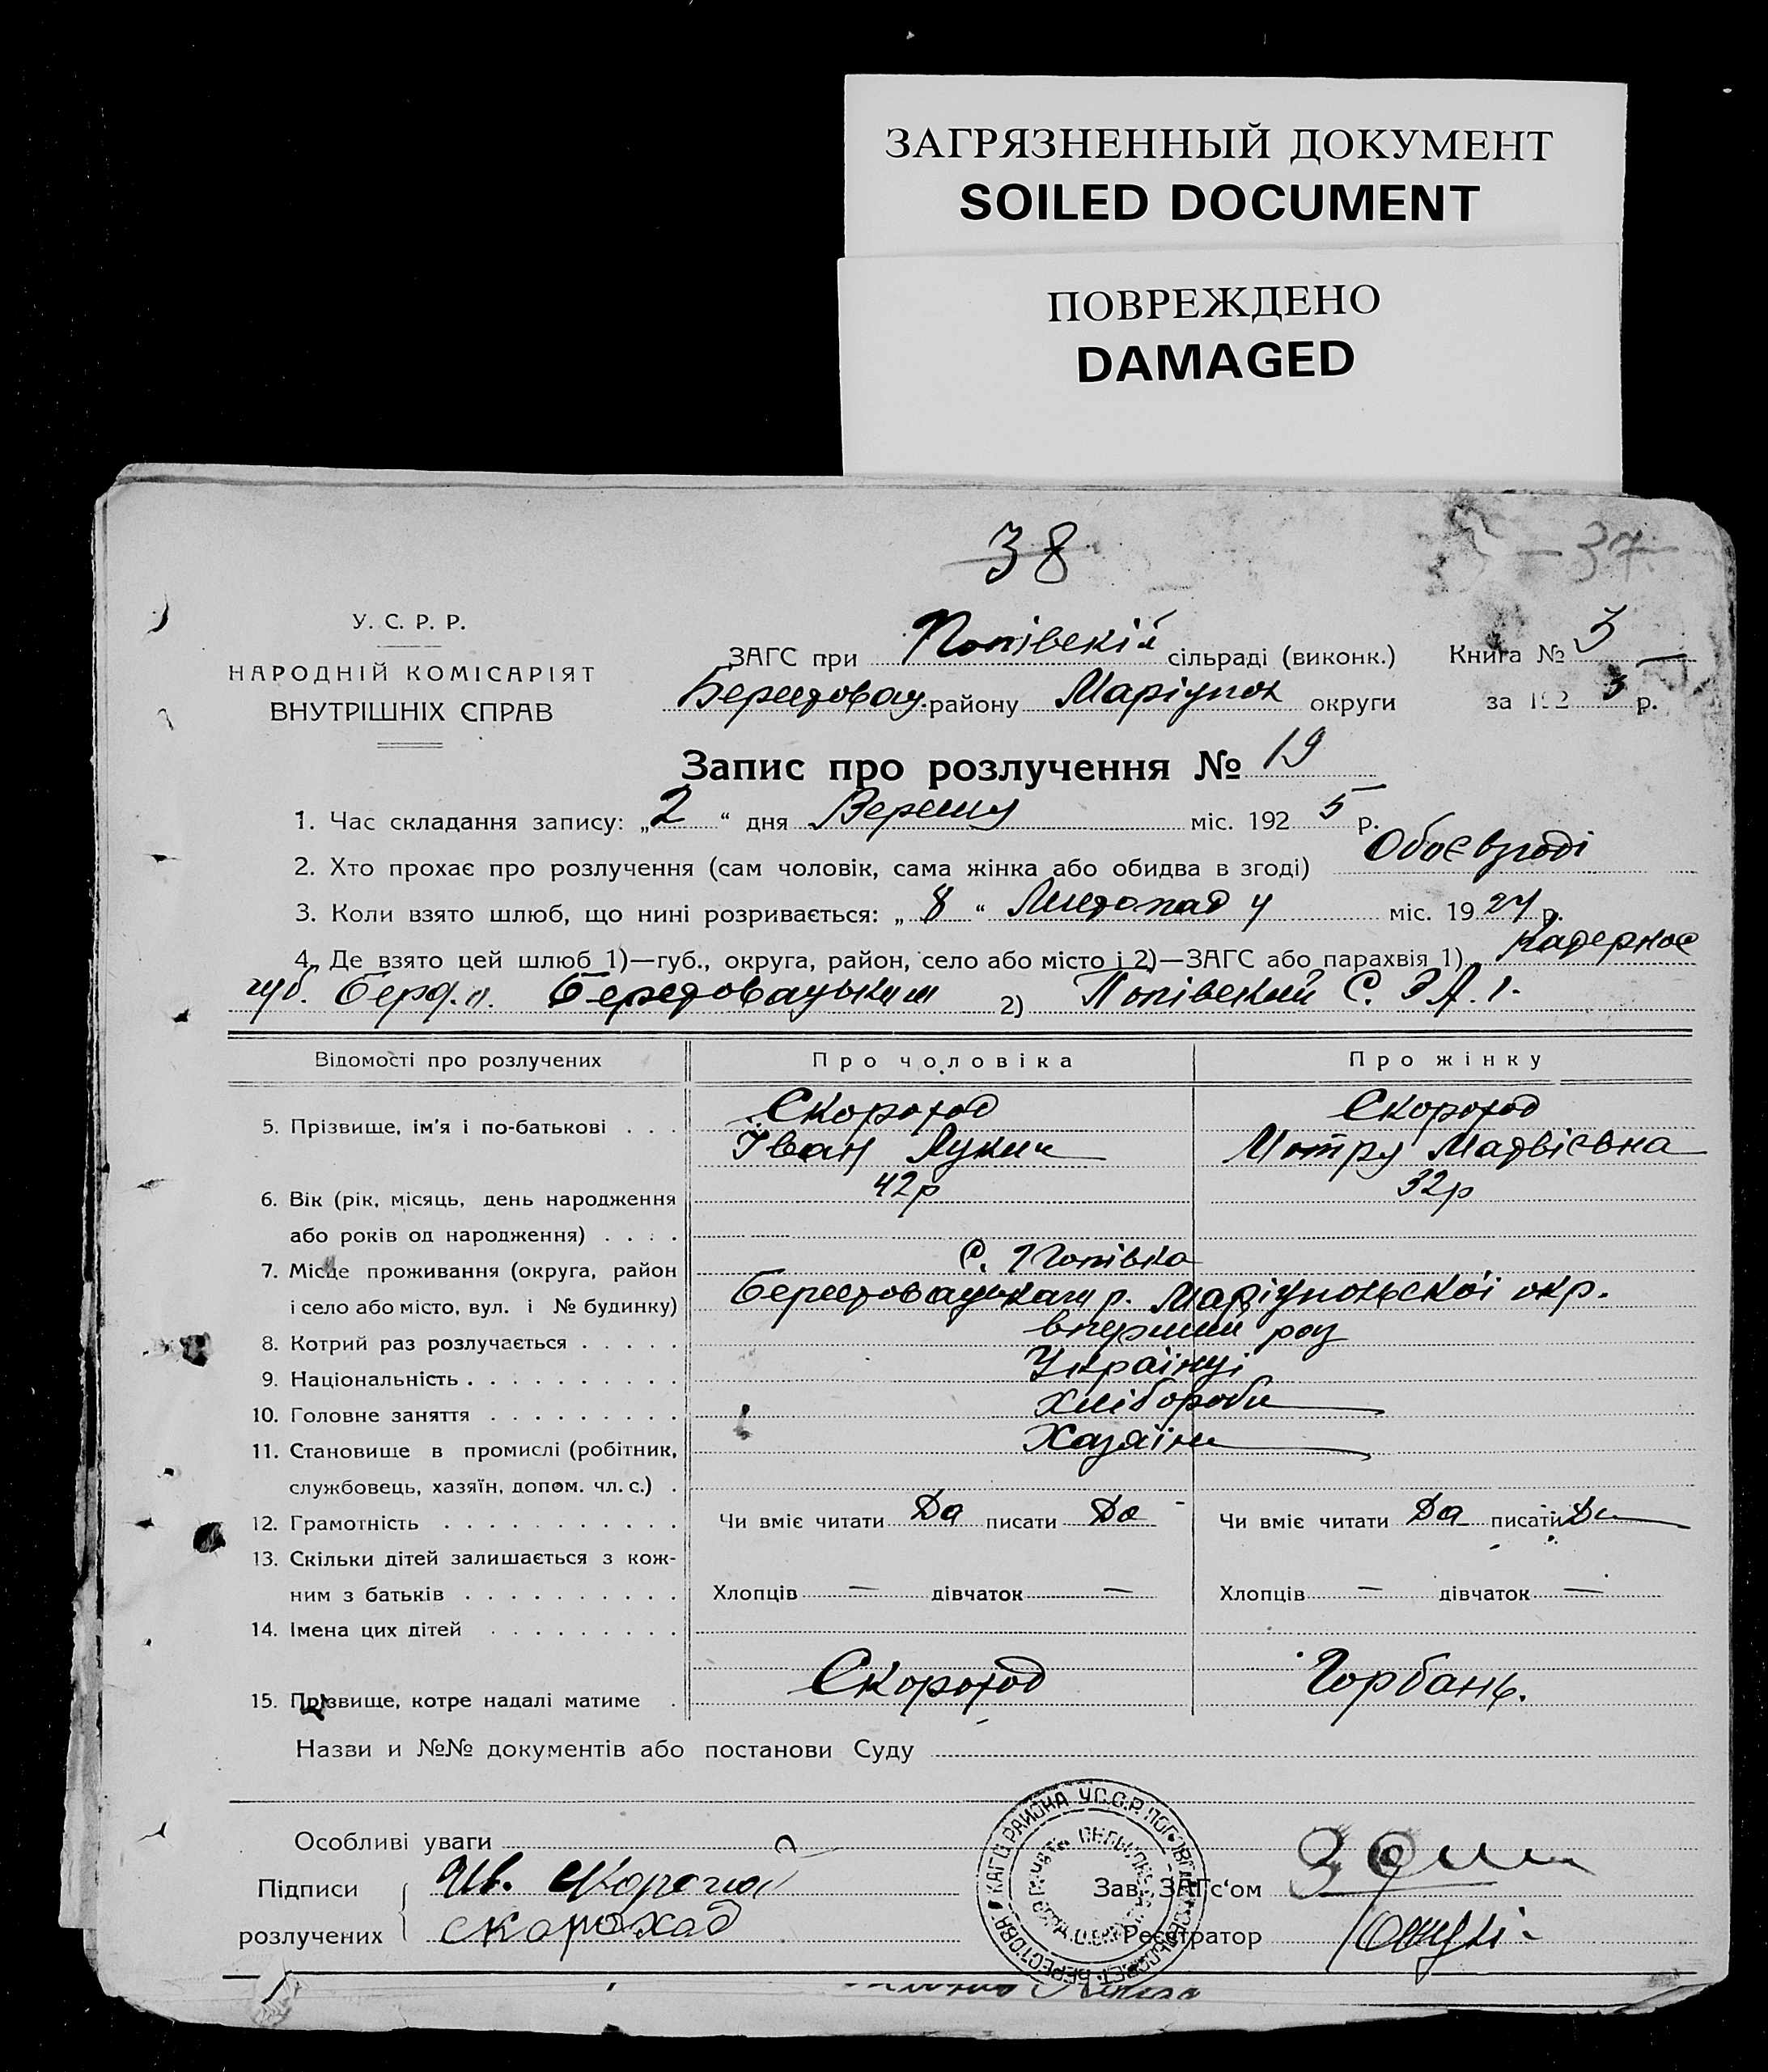 ЗАГРЯЗНЕННЫЙ ДОКУМЕНТ
SOILED DOCUMENT
ПОВРЕЖДЕНО
DAMAGED
38
37
У. С. Р. Р.
НАРОДНІЙ КОМІСАРІЯТ
ВНУТРІШНІХ СПРАВ
ЗАГС при Попівскій сільраді (виконк.) Книга № 3
Берестовец. району Маріупол округи за 192 5 р.
Запис про розлучення № 19
1. Час складання запису: „ 2 “ дня Вересня міс. 192 5 р.
2. Хто прохає про розлучення (сам чоловік, сама жінка або обидва в згоді) Обоє вгоді
3. Коли взято шлюб, що нині розривається: „ 8 “ Листопаду міс. 19 24 р.
4. Де взято цей шлюб 1)—губ., округа, район, село або місто і 2)—ЗАГС або парахвія 1)
губ. 2) Попівский С.
Відомості про розлучених Про чоловіка Про жінку
5. Прізвище, ім'я і по-батькові . . . Скороход Скороход
Іван Лукич Мотря Матвієвна
6. Вік (рік, місяць, день народження 42р 32р
або років од народження) . . . .
7. Місце проживання (округа, район С. Попівка
і село або місто, вул. і № будинку) р. Маріупольскоі окр.
8. Котрий раз розлучається . . . . . вперший раз
9. Національність . . . . . . . . . . Українці
10. Головне заняття . . . . . . . . . Хлібороби
11. Становище в промислі (робітник, Хазяіни
службовець, хазяїн, допом. чл. с.) .
12. Грамотність . . . . . . . . . . . Чи вміє читати Да писати Да Чи вміє читати Да писати Да
13. Скільки дітей залишається з кож-
ним з батьків . . . . . . . . . . Хлопців — дівчаток — Хлопців — дівчаток —
14. Імена цих дітей . . . . . . . . .
15. Прізвище, котре надалі матиме . Скороход Горбань.
Назви и №№ документів або постанови Суду
Особливі уваги
Підписи Ив. Скороход Зав. ЗАГс‘ом
розлучених скороход Реєстратор